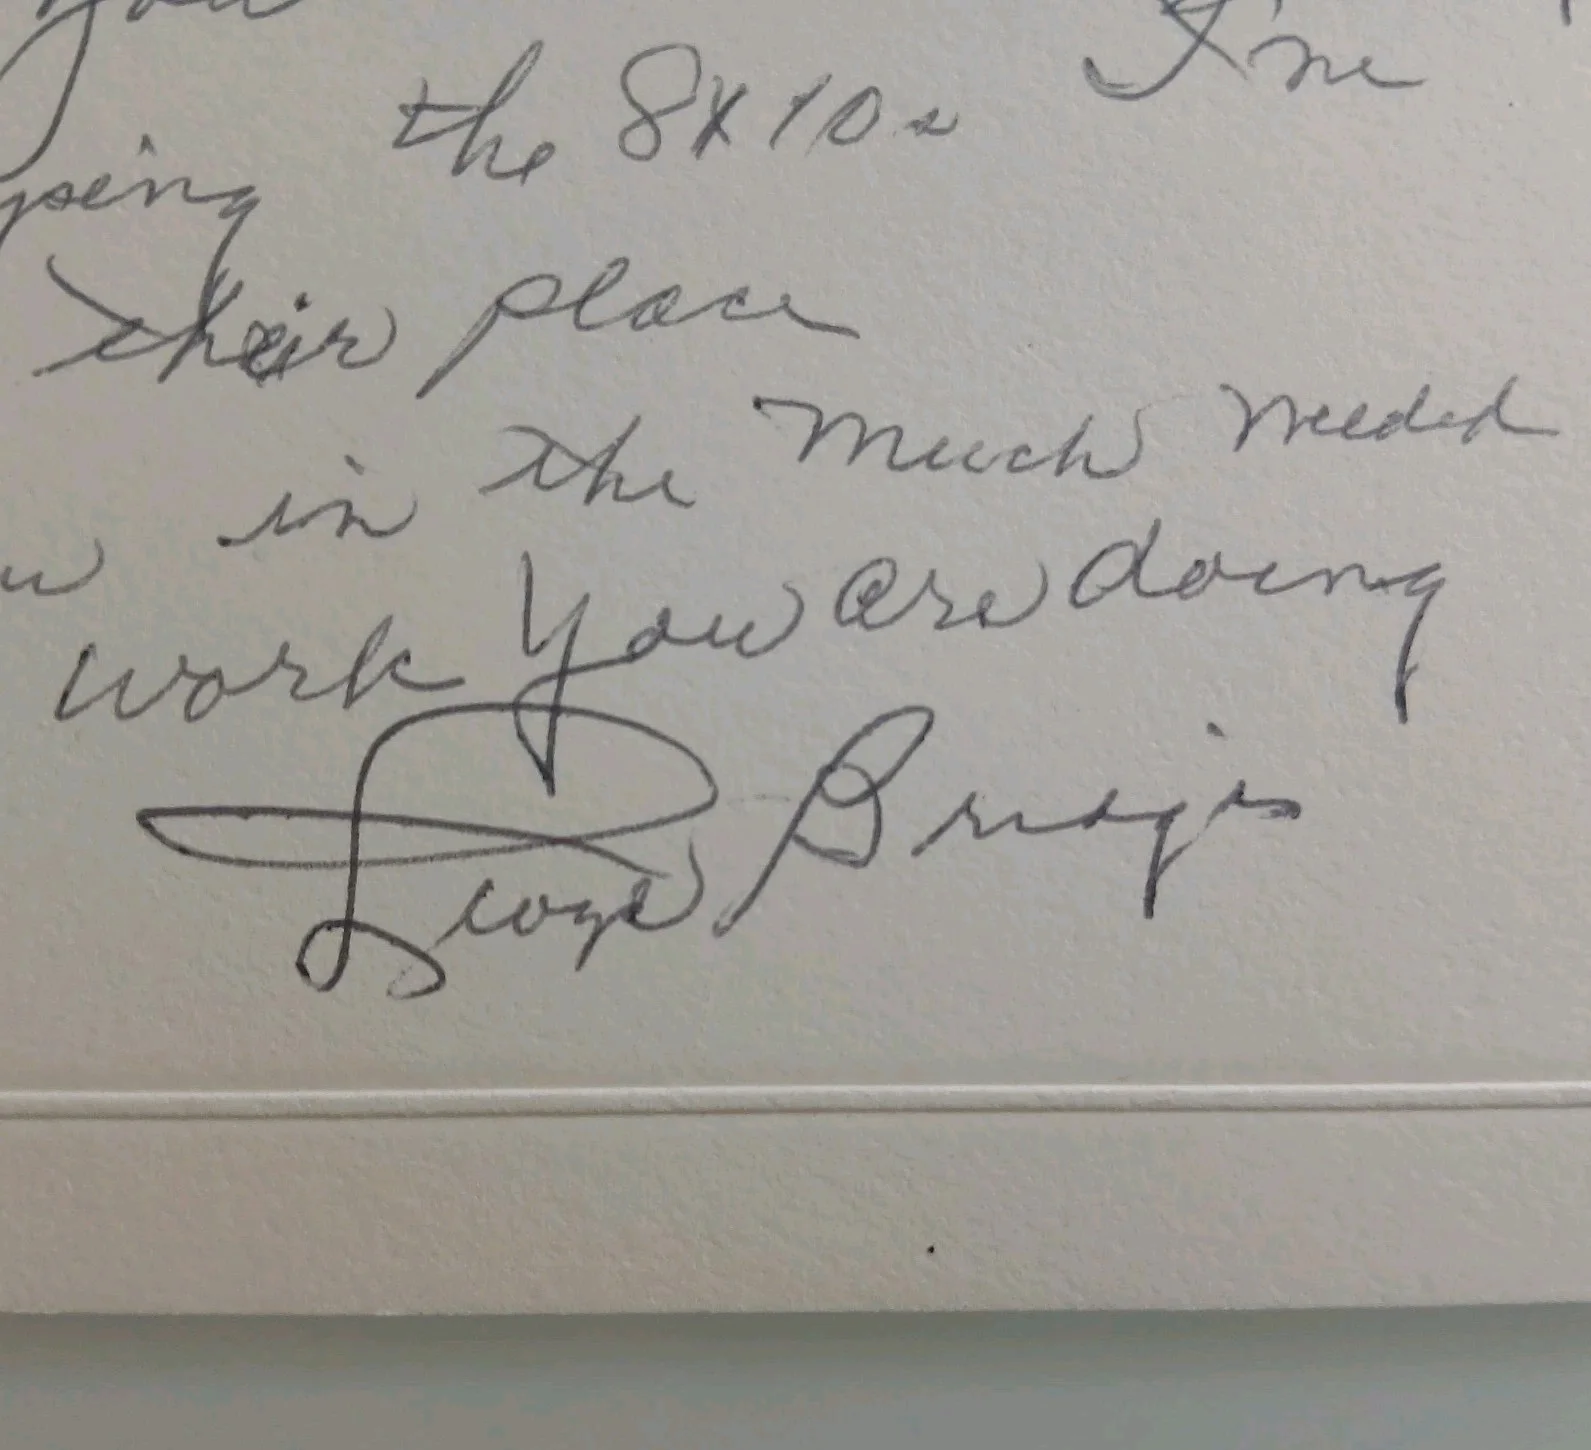 you
the 8x10s I'm
their place
in the much needed
work you are doing
Bridges